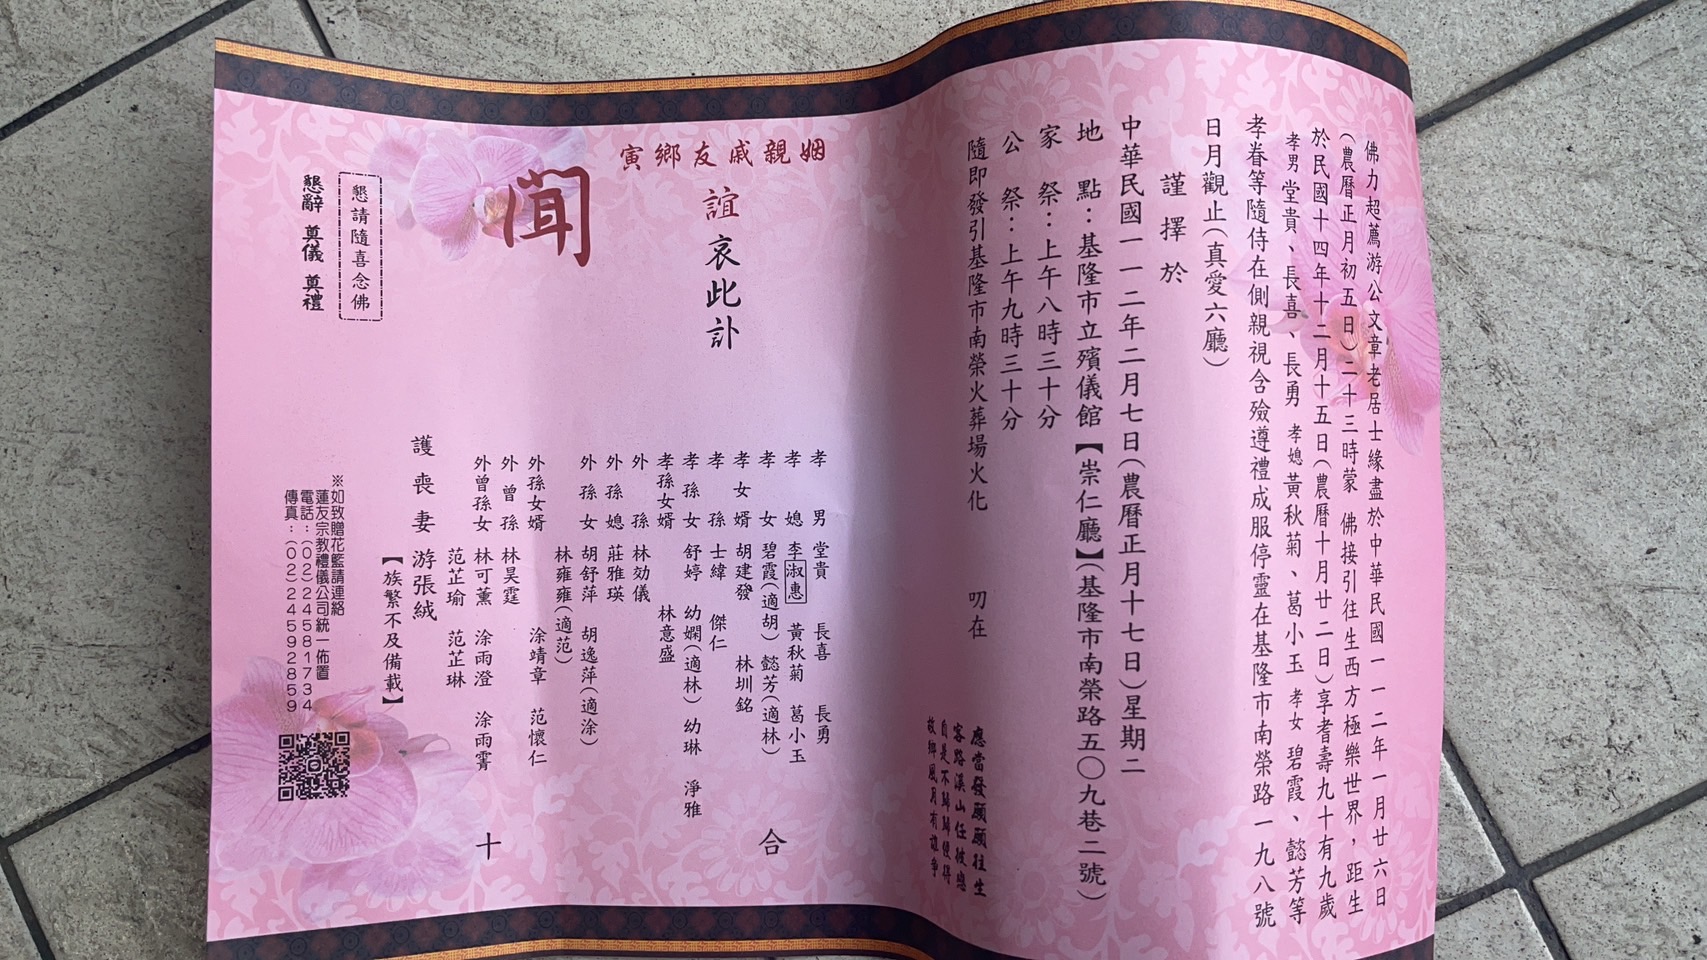 佛力超薦游公文章老居士緣盡於中華民國一一二年一月廿六日
(農曆正月初五日)二十三時蒙 佛接引往生西方極樂世界，距生
於民國十四年十二月十五日(農曆十月廿二日)享耆壽九十有九歲
孝男堂貴、長喜、長勇 孝媳黃秋菊、葛小玉 孝女碧霞、懿芳等
孝眷等隨侍在側親視含殮遵禮成服停靈在基隆市南榮路一九八號
日月觀止(真愛六廳)
謹擇於
中華民國一一二年二月七日(農曆正月十七日)星期二
地 點：基隆市立殯儀館【崇仁廳】(基隆市南榮路五〇九巷二號)
家 祭：上午八時三十分
公 祭：上午九時三十分
隨即發引基隆市南榮火葬場火化 叨在
應當發願願往生
客路溪山任彼戀
自是不歸歸便得
故鄉風月有誰爭
姻親戚友鄉寅
誼 哀此訃
聞
孝男 堂貴 長喜 長勇
孝媳 李淑惠 黃秋菊 葛小玉
孝女 碧霞(適胡) 懿芳(適林)
孝女婿 胡建發 林圳銘
孝孫 士緯 傑仁
孝孫女 舒婷 幼嫻(適林) 幼琳 淨雅
孝孫女婿 林意盛
外孫 林効儀
外孫媳 莊雅瑛
外孫女 胡舒萍 胡逸萍(適涂)
林雍雍(適范)
外孫女婿 涂靖章 范懷仁
外曾孫 林昊霆
外曾孫女 林可薰 涂雨澄 涂雨霄
范芷瑜 范芷琳
護喪妻 游張絨
【族繁不及備載】
合
十
懇請隨喜念佛
懇辭 奠儀 奠禮
※如致贈花籃請連絡
蓮友宗教禮儀公司統一佈置
電話：(02)24581734
傳真：(02)24592859